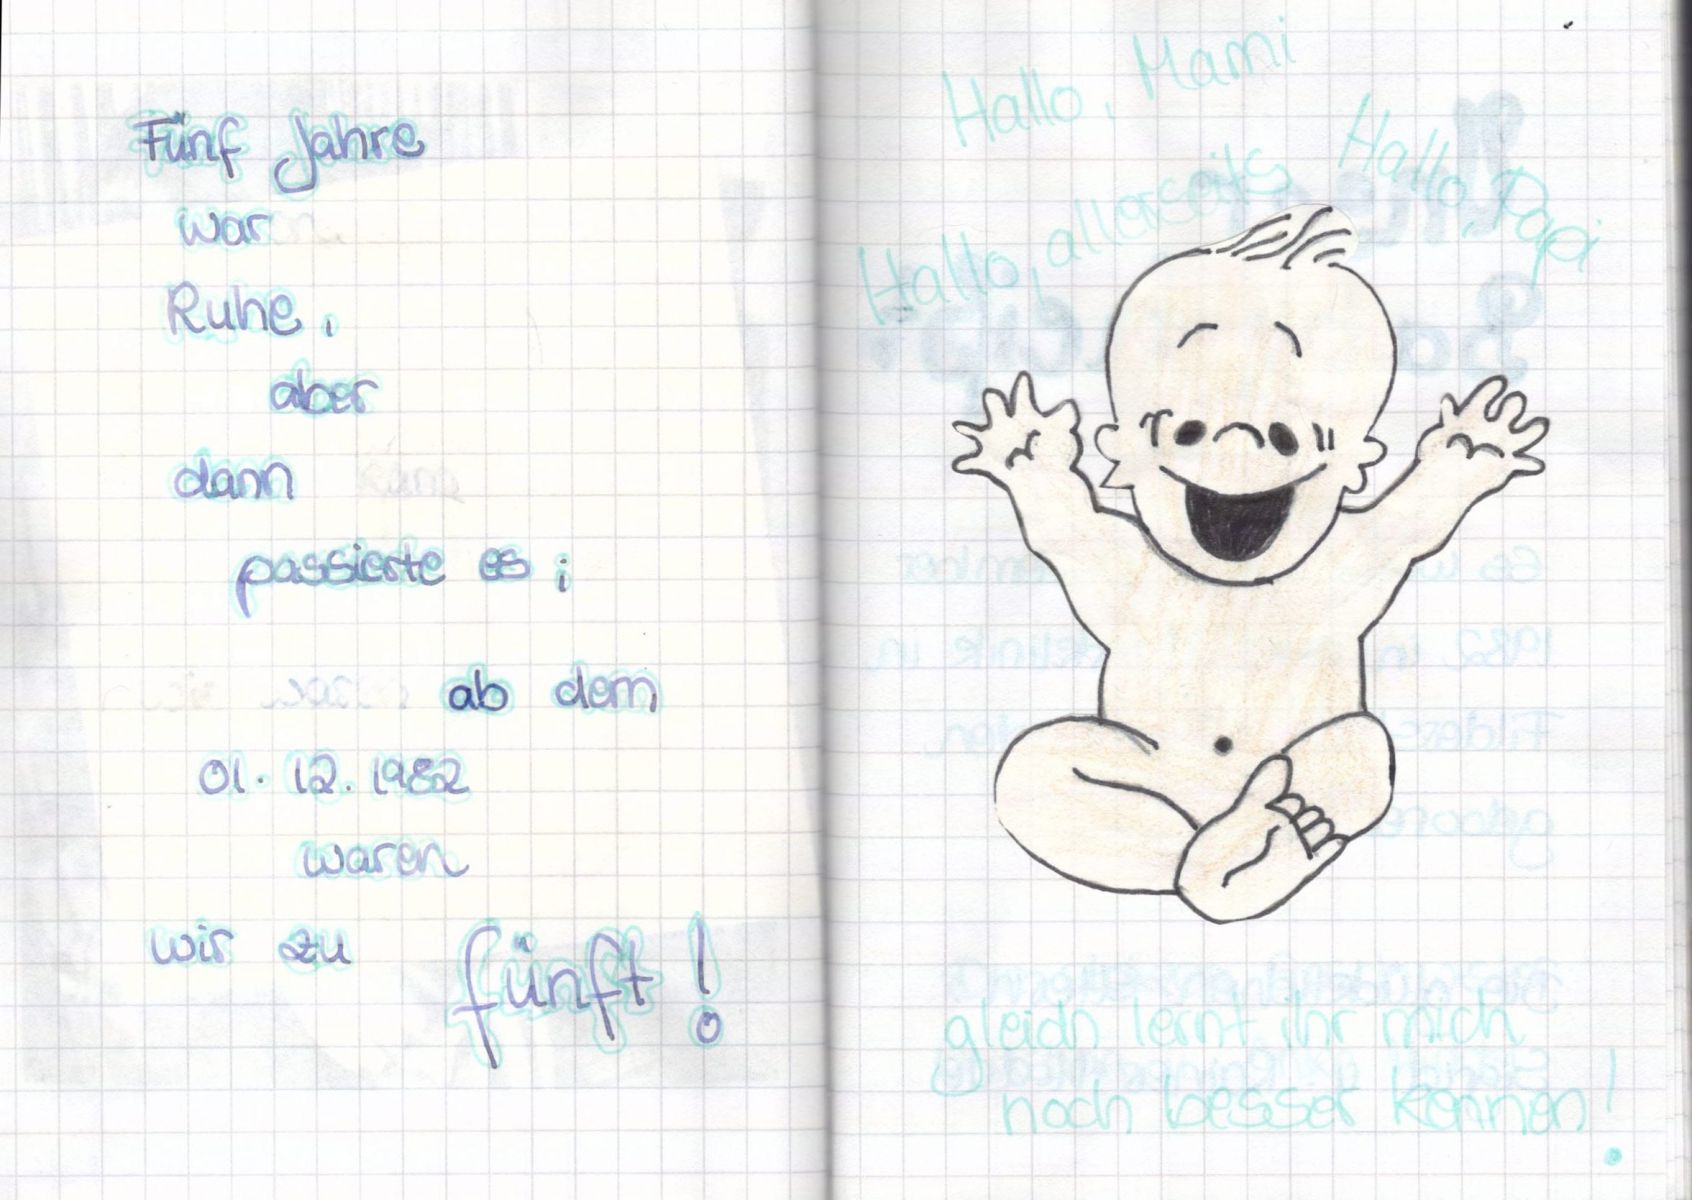 Fünf Jahre
war
Ruhe,
aber
dann
passierte es;
ab dem
01. 12. 1982
waren
wir zu fünft!
Hallo, Mami
Hallo, Papi
Hallo, allerseits
gleich lernt ihr mich
noch besser kennen!